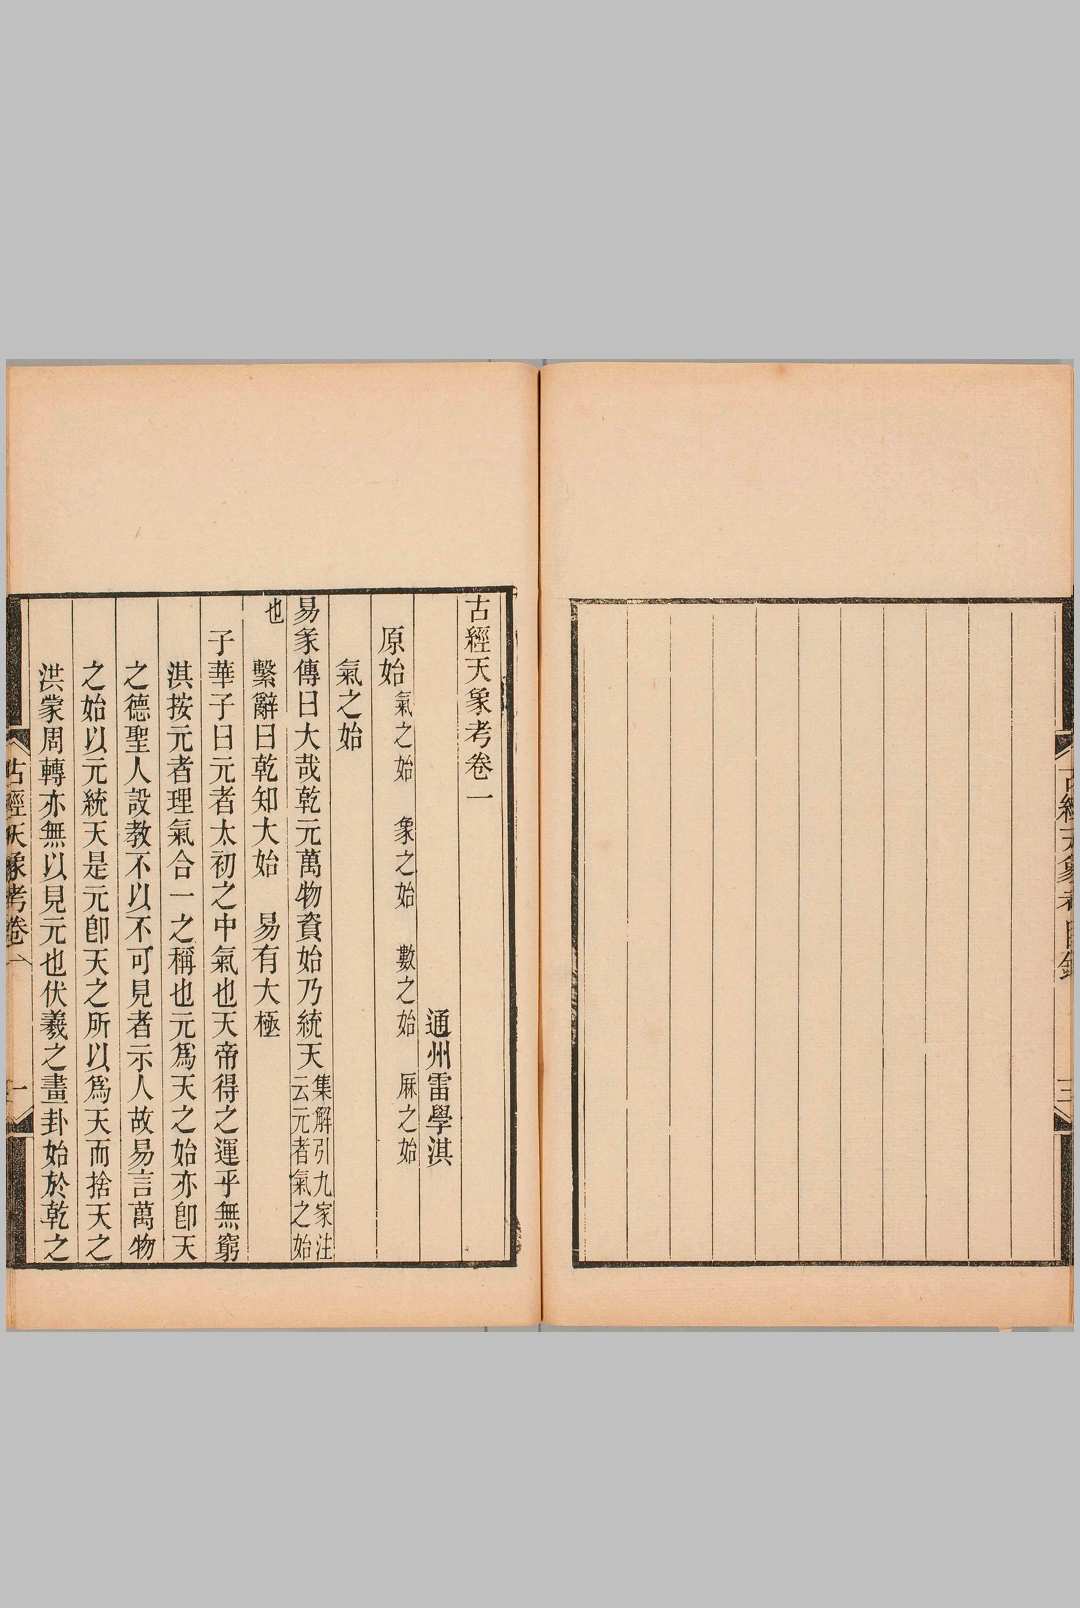 古經天象考目錄
三
古經天象考卷一
通州雷學淇
原始 氣之始 象之始 數之始 厤之始
氣之始
易彖傳曰大哉乾元萬物資始乃統天 集解引九家注
云元者氣之始
也
繫辭曰乾知大始 易有大極
子華子曰元者太初之中氣也天帝得之運乎無窮
淇按元者理氣合一之稱也元爲天之始亦卽天
之德聖人設教不以不可見者示人故易言萬物
之始以元統天是元卽天之所以爲天而捨天之
洪蒙周轉亦無以見元也伏羲之畫卦始於乾之
古經天象考卷一
一